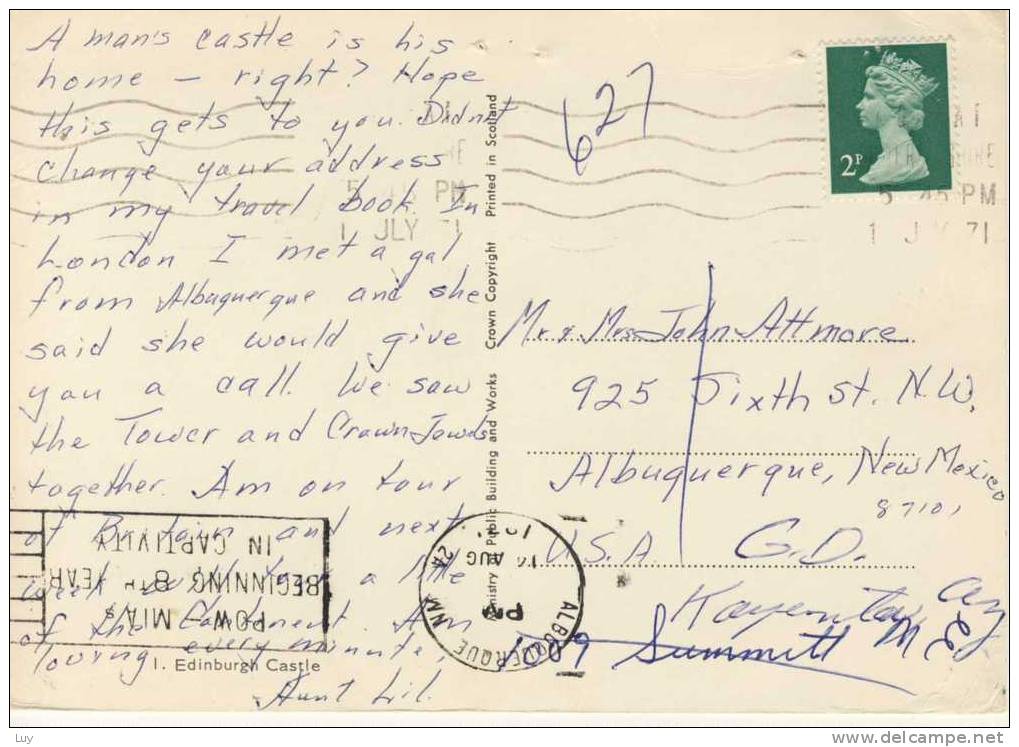 A man's castle is his
home – right? Hope
this gets to you. Didn't
change your address
in my travel book. In
London I met a gal
from Albuquerque and she
said she would give
you a call. We saw
the Tower and Crown Jewels
together. Am on tour
of Britain and next
week a little
of the Continent. Am
loving every minute,
Aunt Lil.
1. Edinburgh Castle
POW MIAs
BEGINNING 8TH YEAR
IN CAPTIVITY
Ministry of Public Building and Works Crown Copyright Printed in Scotland
627
2P
5 45 PM
1 JLY 71
5 PM
1 JLY 71
Mr. & Mrs. John Attmore
925 Sixth St. N.W.
Albuquerque, New Mexico
87101
U.S.A. G.D.
Kayenta, az
109 Summett
ALBUQUERQUE NM
PM
AUG
Luy
www.delcampe.net